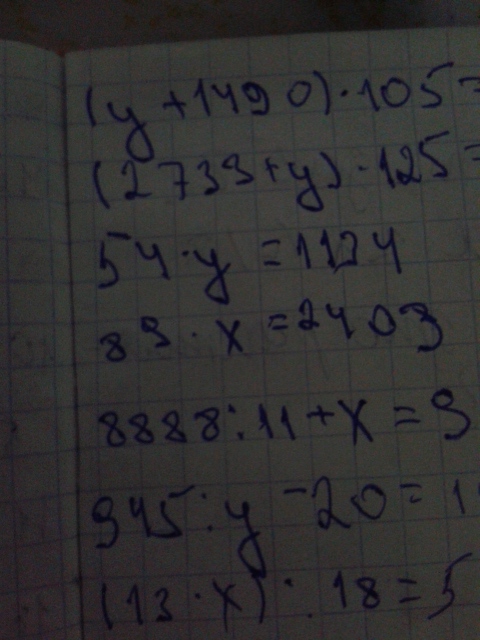 (y + 1490) · 105 =
(2733 + y) · 125 =
54 · y = 1134
89 · x = 2403
8888 : 11 + x = 9
945 : y - 20 = 1
(13 · x) : 18 = 5